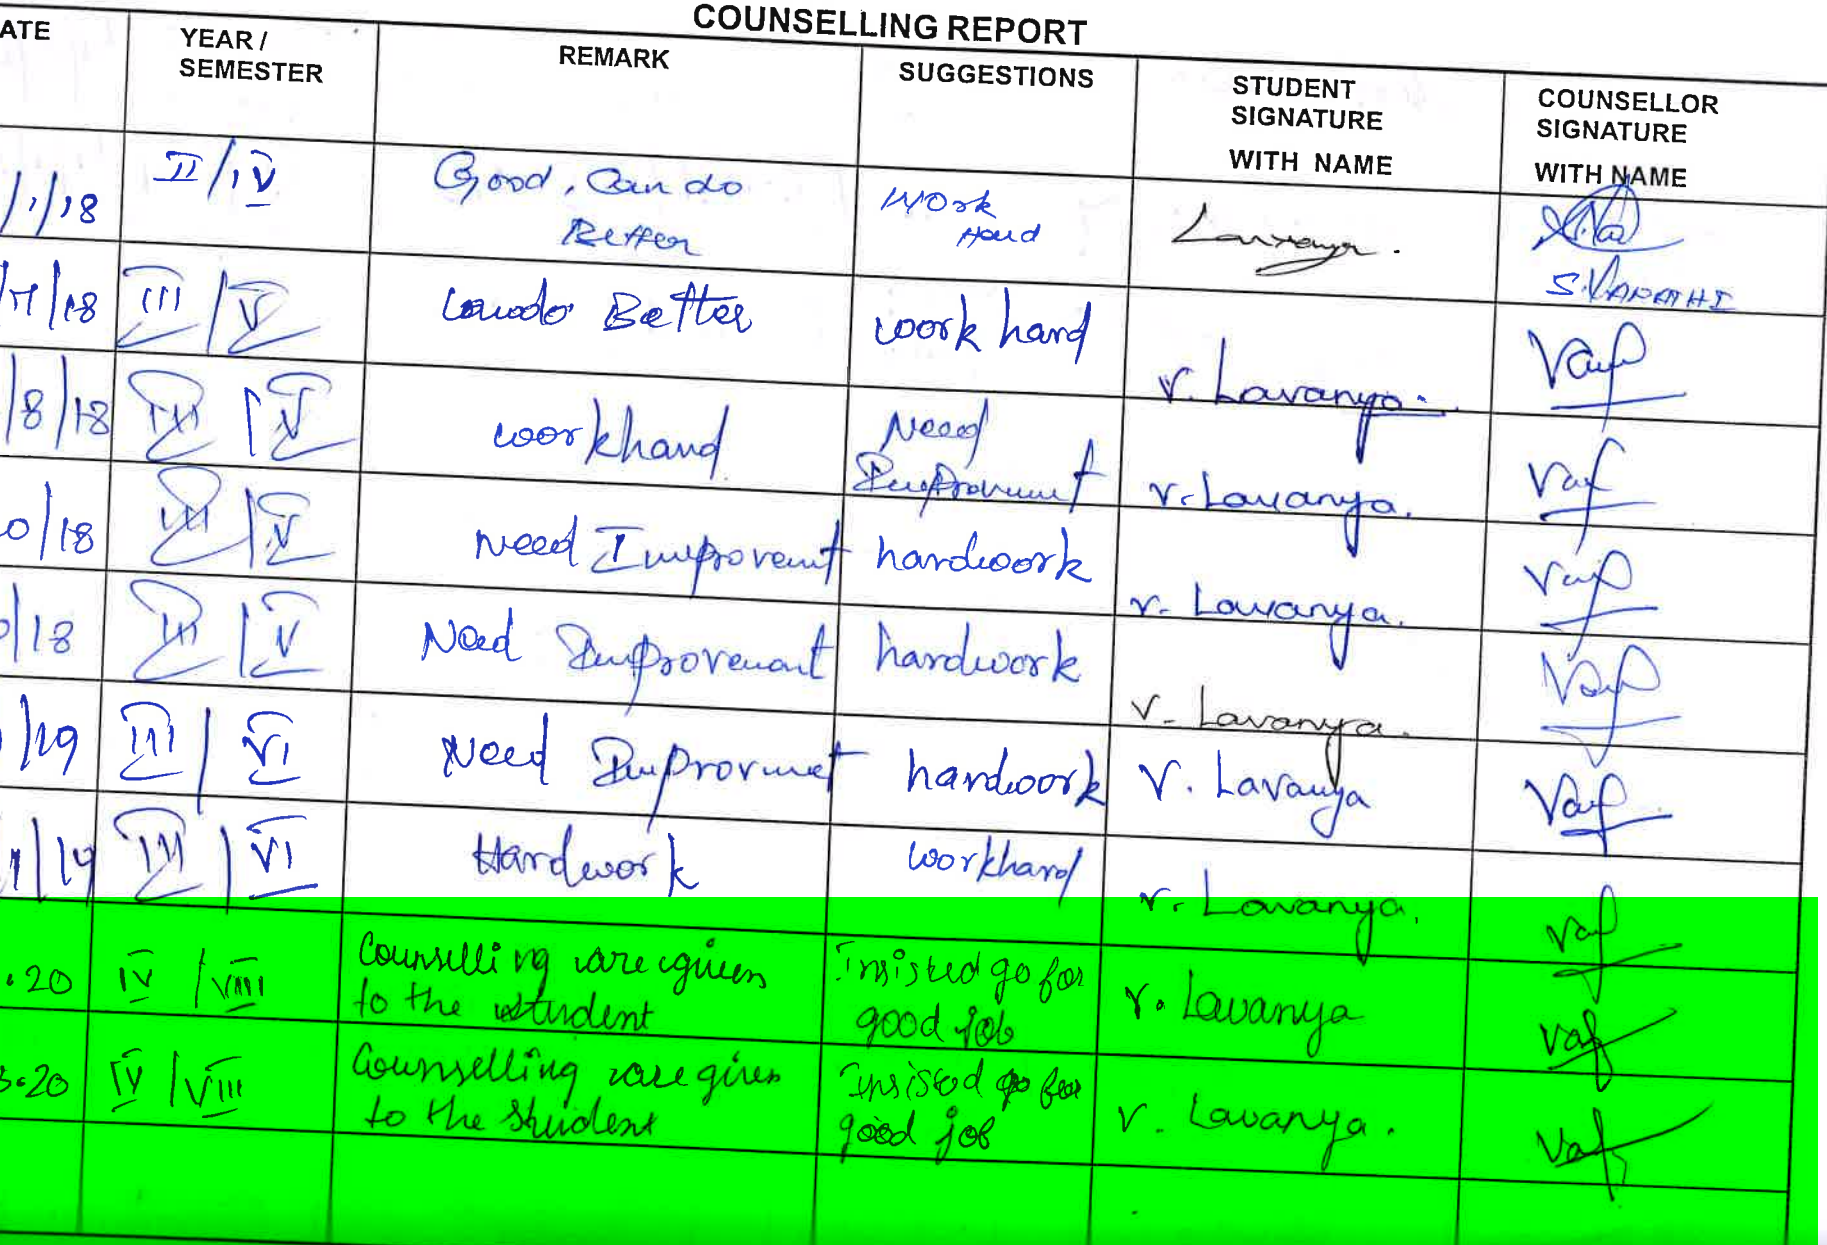 COUNSELLING REPORT
ATE
YEAR /
SEMESTER
REMARK
SUGGESTIONS
STUDENT
SIGNATURE
WITH NAME
COUNSELLOR
SIGNATURE
WITH NAME
/1/18
II/IV
Good, Can do
Better
Work
Hard
Lavanya.
S.VARATHI
/7/18
III/V
Cando Better
work hard
V. Lavanya.
/8/18
III/V
workhard
Need
Improvement
V. Lavanya.
0/18
III/V
Need Improvent
hardwork
V. Lavanya.
/18
III/V
Need Improvement
hardwork
V. Lavanya.
/19
III/VI
Need Improvmet
hardwork
V. Lavanya
/19
III/VI
Hardwork
workhard
V. Lavanya.
.20
IV/VIII
Counselling are given
to the student
Insisted go for
good job
V. Lavanya
3.20
IV/VIII
Counselling are given
to the student
Insisted go for
good job
V. Lavanya.